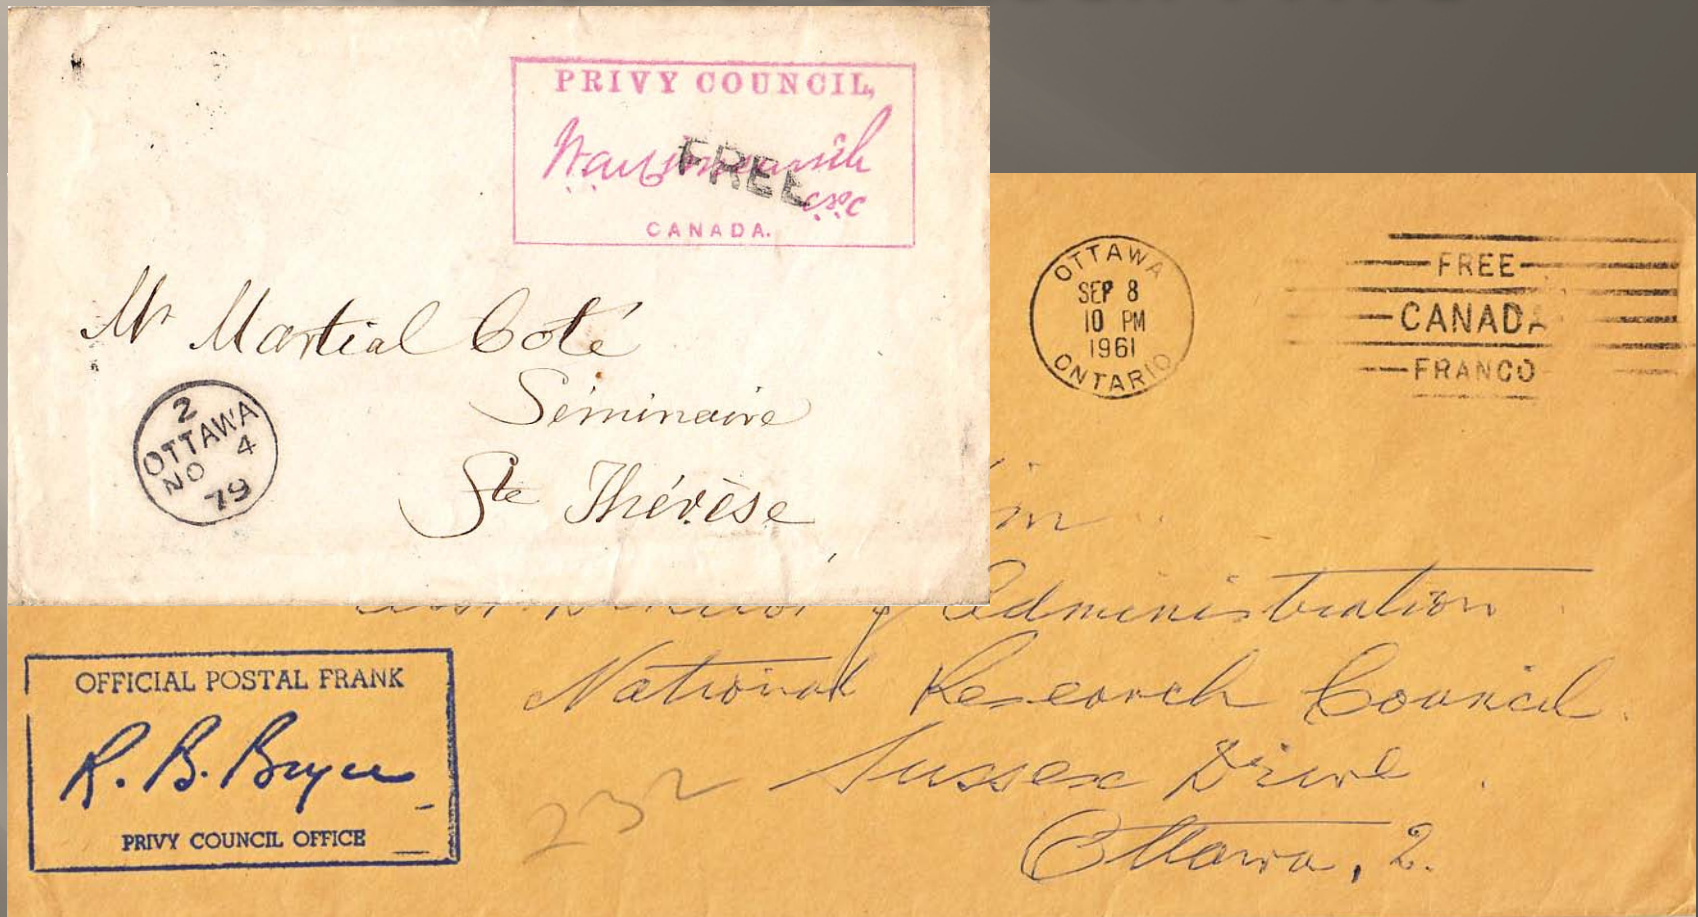 PRIVY COUNCIL,
FREE
CANADA.
Mr Martial Coté
Séminaire
Ste Thérèse
2
OTTAWA
NO 4
79
OTTAWA
SEP 8
10 PM
1961
ONTARIO
FREE
CANADA
FRANCO
Administration
National Research Council.
Sussex Drive
Ottawa, 2.
232
OFFICIAL POSTAL FRANK
R. B. Bryce
PRIVY COUNCIL OFFICE